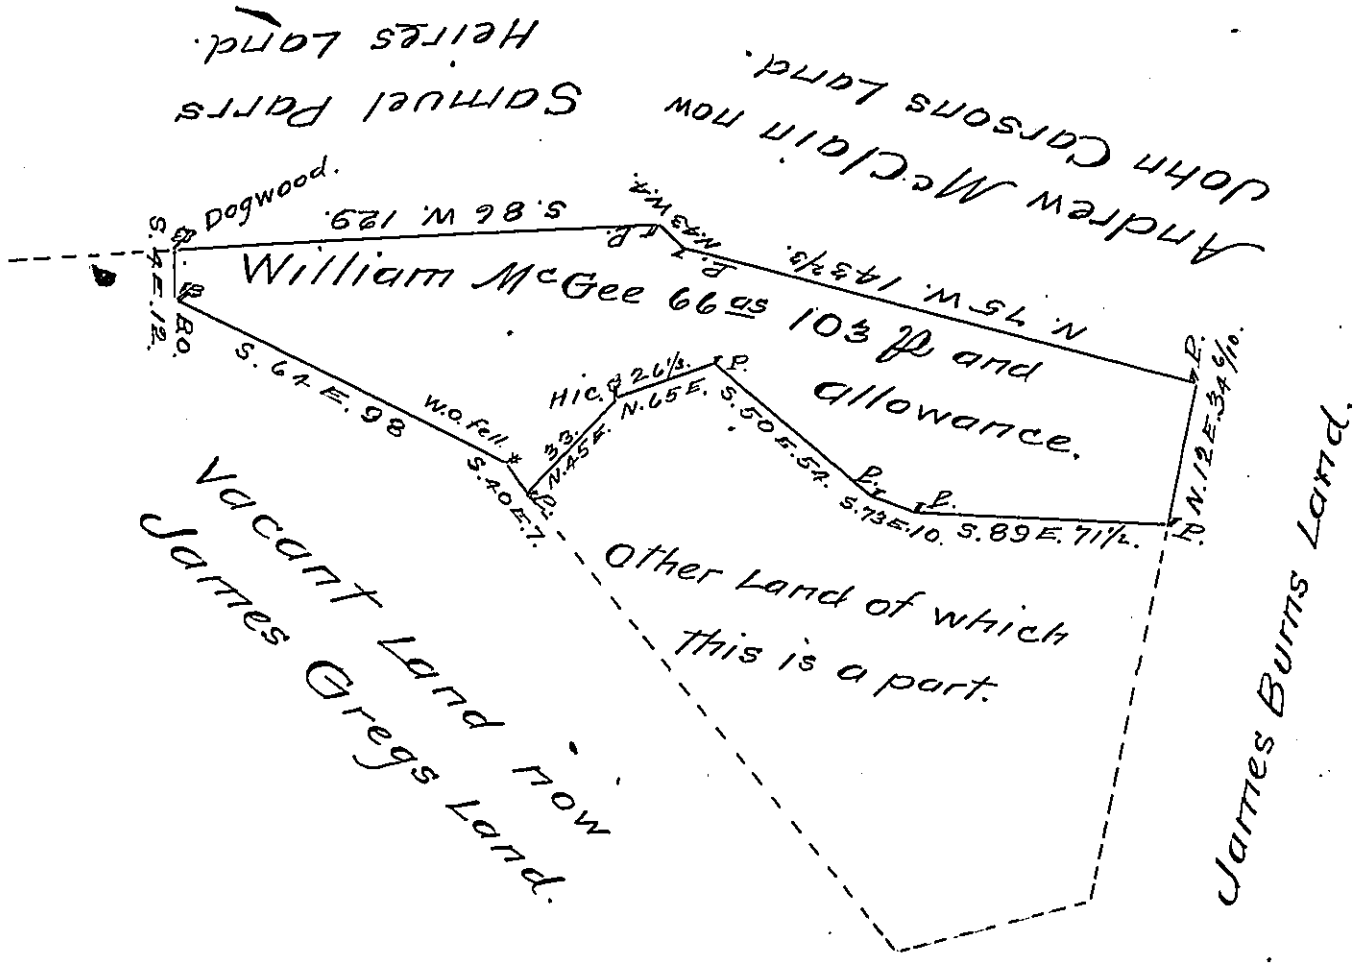 Samuel Parrs
Heires Land.
Andrew McClain now
John Carsons Land.
Dogwood.
S. 86 W. 129.
P.
N. 43 W. 7.
P.
N. 75 W. 143 2/3.
P.
N. 12 E. 34 6/10.
P.
S. 4 E. 12.
BO.
William McGee 66 as 103 ps and
allowance.
S. 64 E. 98
W.O. Fell.
S. 40 E. 7.
P.
33.
N. 45 E.
Hic.
26 1/3.
N. 65 E.
P.
S. 50 E. 54.
P.
S. 73 E. 10.
P.
S. 89 E. 71 1/2.
Other Land of which
this is a part.
Vacant Land now
James Gregs Land.
James Burns Land.